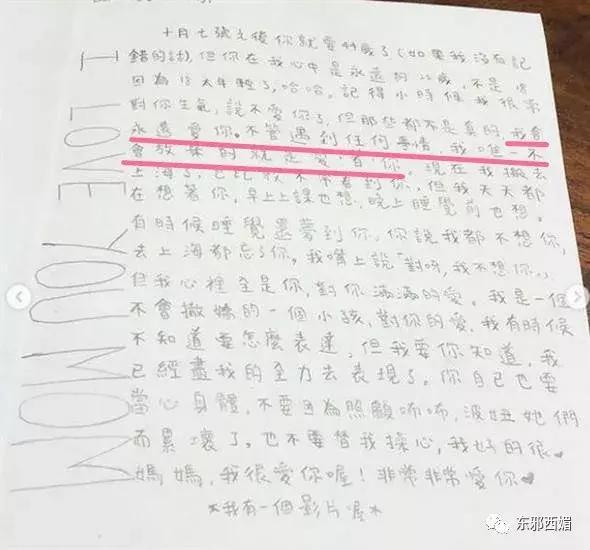 I LOVE YOU MOM
十月七號之後你就要44歲了(如果我沒有記
錯的話),但你在我心中是永遠的28歲,不是18
因為18太年輕了,哈哈。記得小時候我很常
對你生氣,說不愛你了,但那些都不是真的,我會
永遠愛你。不管遇到任何事情,我唯一不
會放棄的就是愛,有你。現在我搬去
上海了,也比較不常看到你,但我天天都
在想著你,早上上課也想,晚上睡覺前也想。
有時候睡覺還夢到你,你說我都不想你,
去上海都忘了你。我嘴上說「對呀,我不想你」,
但我心裡全是你,對你滿滿的愛。我是一個
不會撒嬌的一個小孩,對你的愛,我有時候
不知道要怎麼表達,但我要你知道,我
已經盡我的全力去表現了。你自己也要
當心身體,不要因為照顧咘咘,波妞她們
而累壞了。也不要替我操心,我好的很♥
媽媽,我很愛你喔!非常非常愛你♥
*我有一個影片喔*
东邪西媚